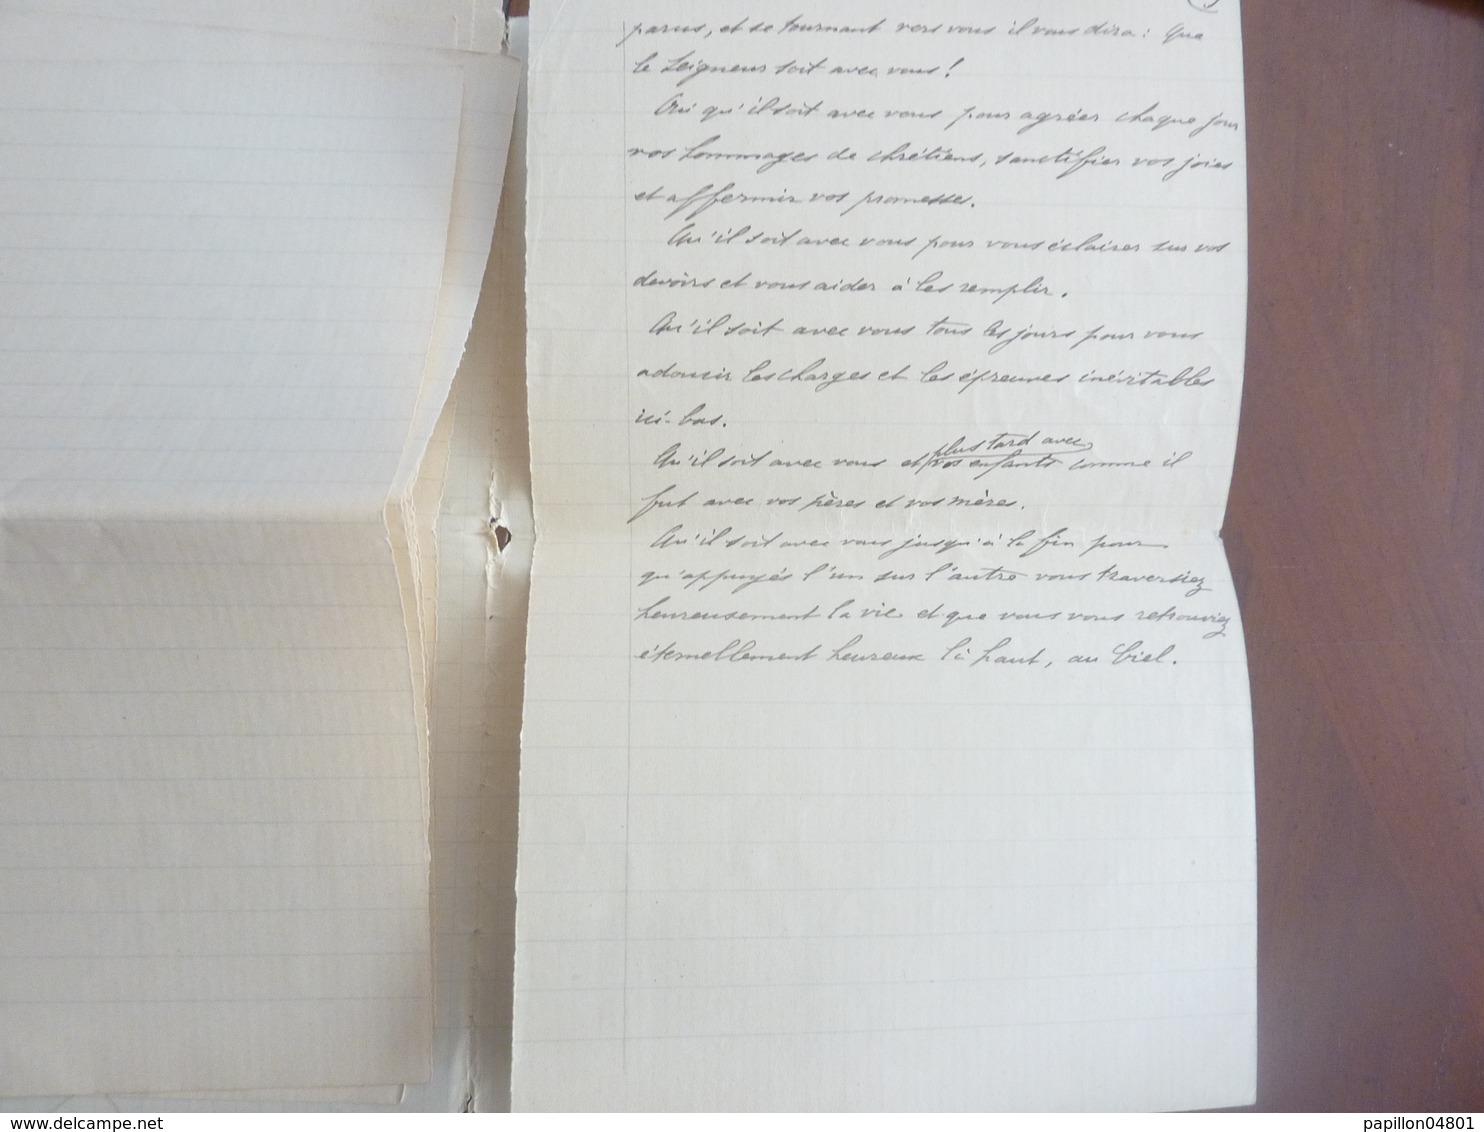 parus, et se tournant vers vous il vous dira : Que
le Seigneur soit avec vous !
Oui qu'il soit avec vous pour agréer chaque jour
vos hommages de chrétiens, sanctifier vos joies
et affermir vos promesses.
Qu'il soit avec vous pour vous éclairer sur vos
devoirs et vous aider à les remplir.
Qu'il soit avec vous tous les jours pour vous
adoucir les charges et les épreuves inévitables
ici-bas.
plus tard avec
Qu'il soit avec vous et vos enfants comme il
fut avec vos pères et vos mères.
Qu'il soit avec vous jusqu'à la fin pour
qu'appuyés l'un sur l'autre vous traversiez
heureusement la vie et que vous vous retrouviez
éternellement heureux là haut, au Ciel.
www.delcampe.net
papillon04801